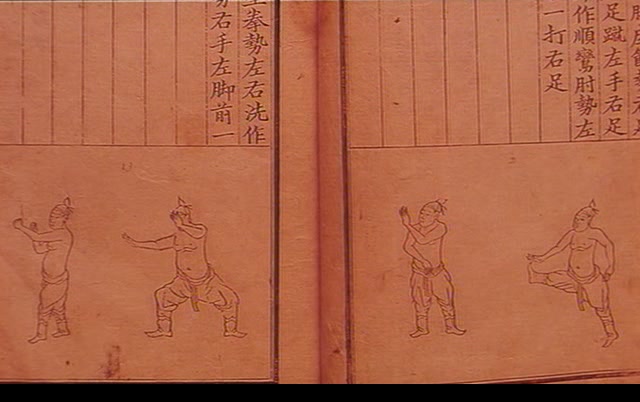 足蹴左手右足
作順鸞肘勢左
一打右足
拳勢左右洗作
右手左脚前一